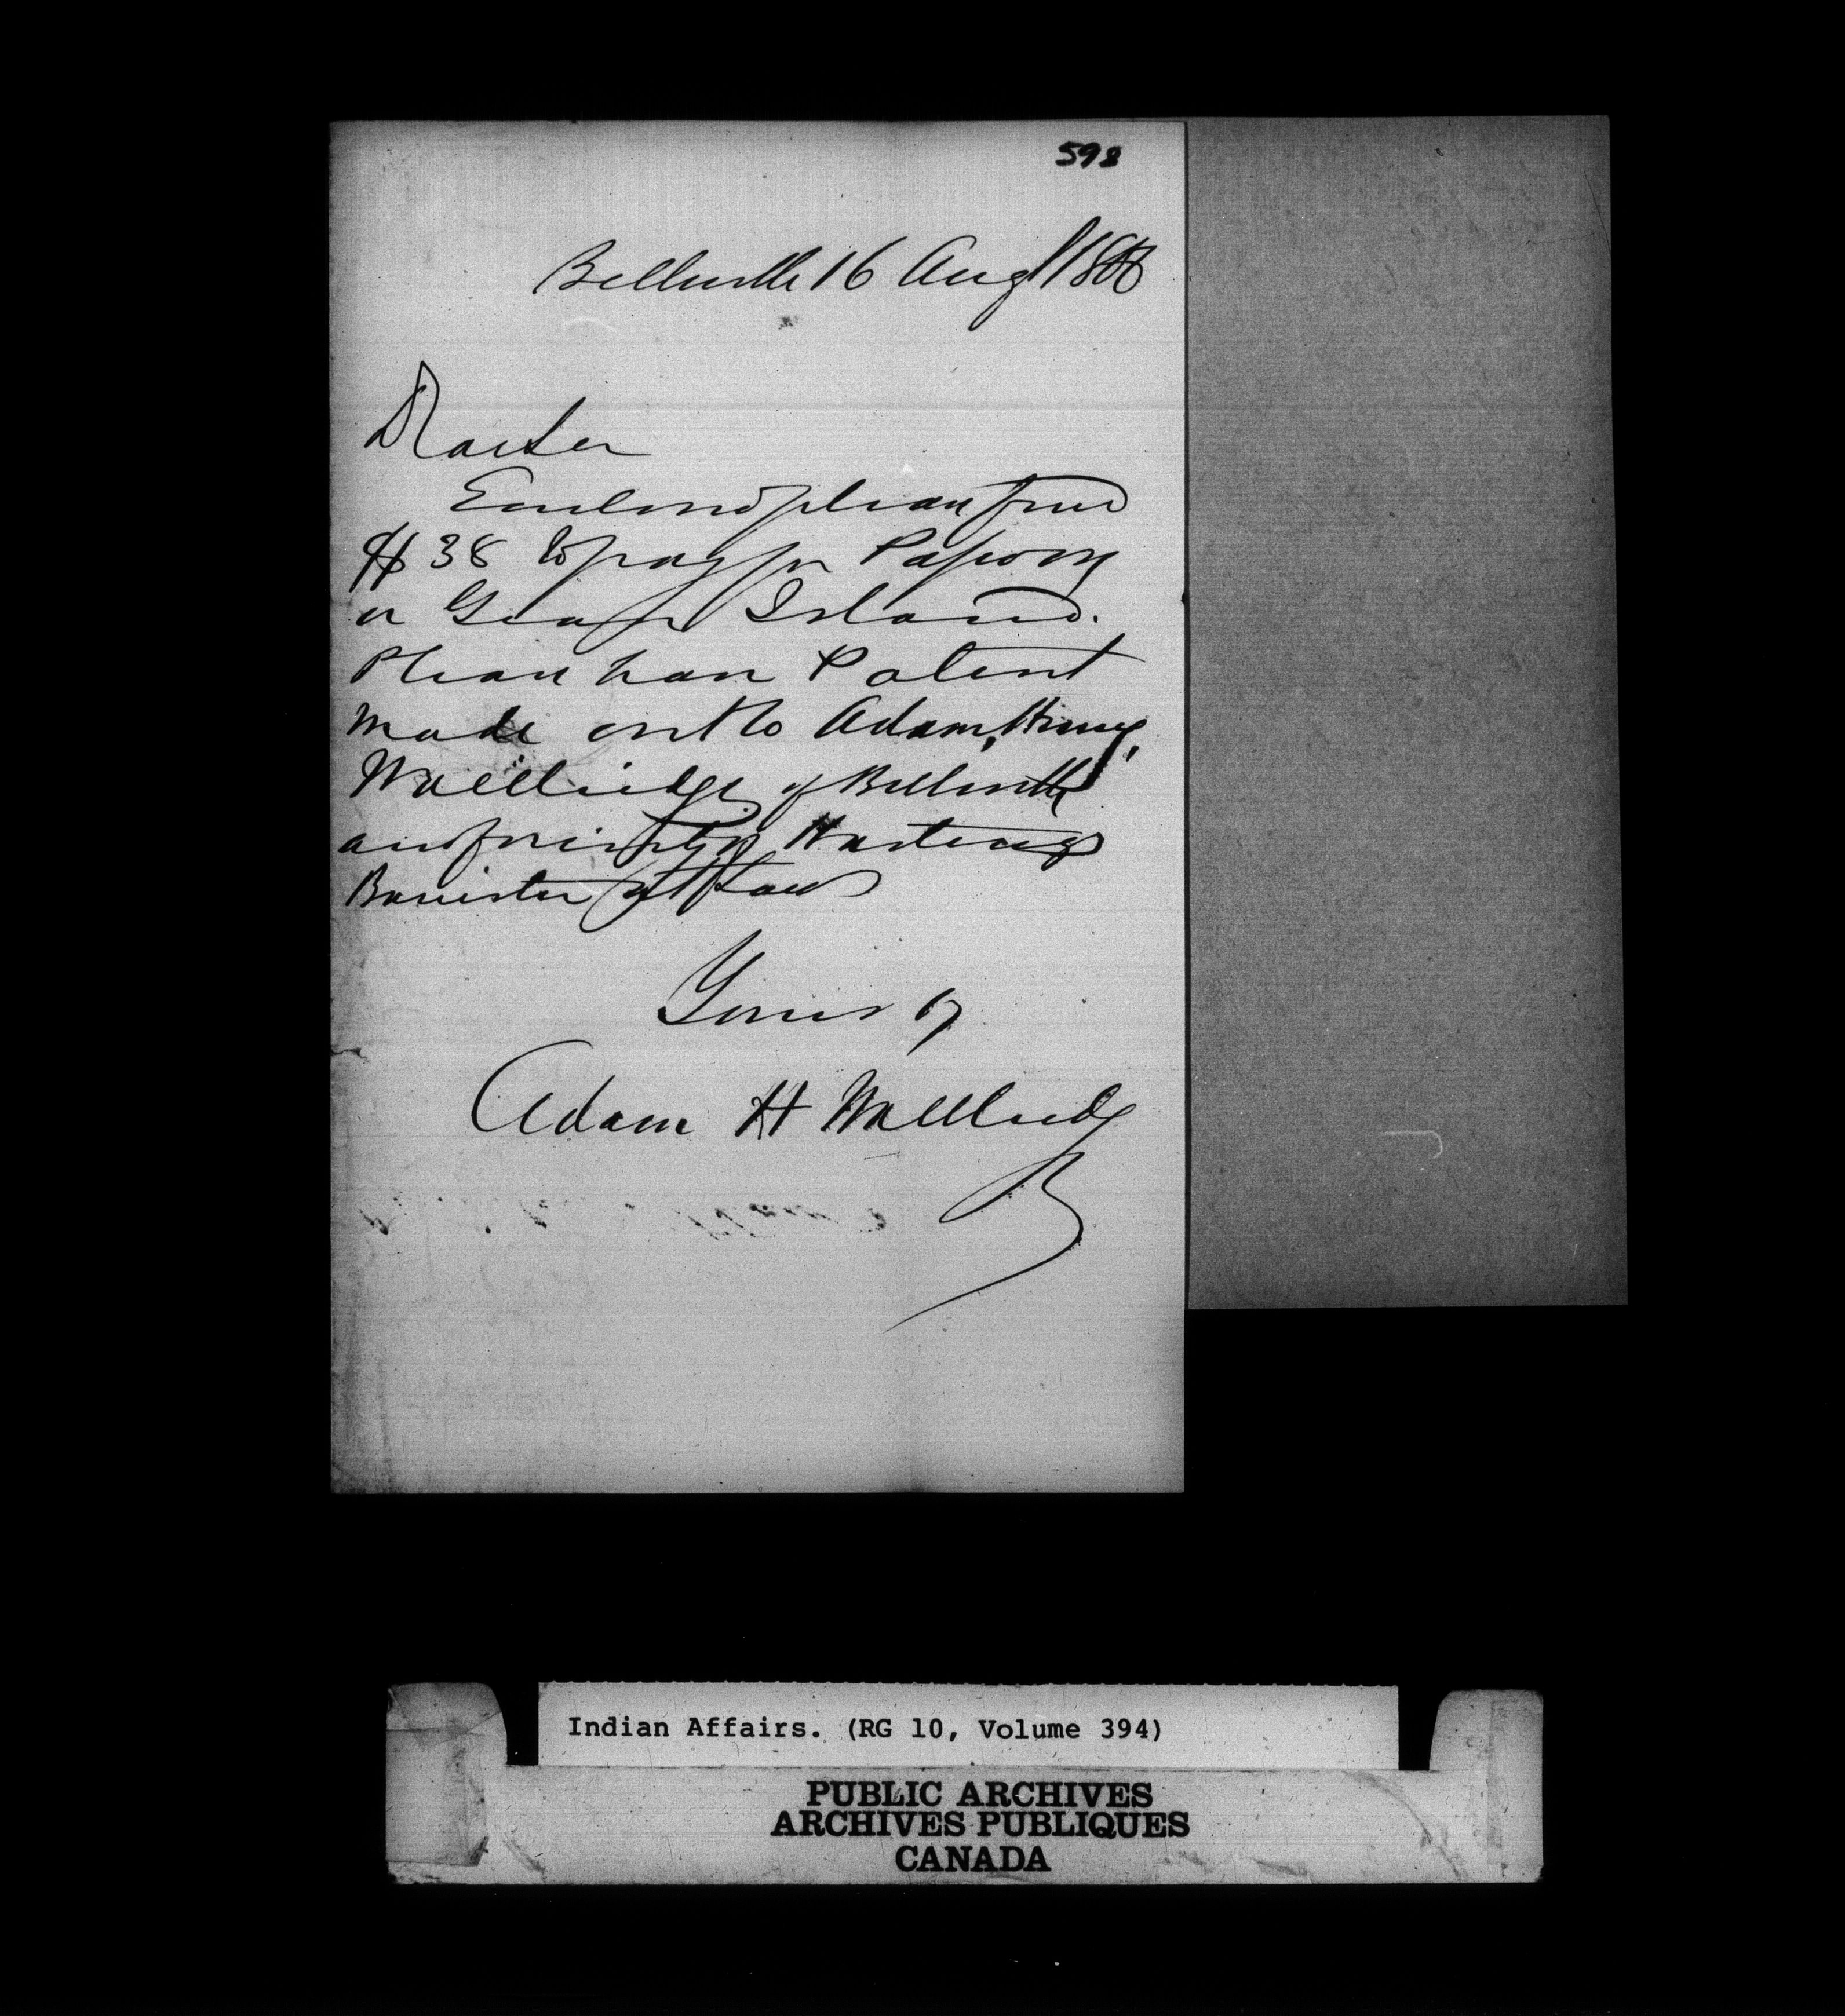 598
Belleville 16 Augt 18
Dear Sir
Enclosed please find
$38 to pay for Papoose
or Grape Island.
Please have Patent
made out to Adam, Henry,
Wallbridge of Belleville
and County of Hastings
Barrister at Law
Yours &
Adam H Wallbridge
Indian Affairs. (RG 10, Volume 394)
PUBLIC ARCHIVES
ARCHIVES PUBLIQUES
CANADA